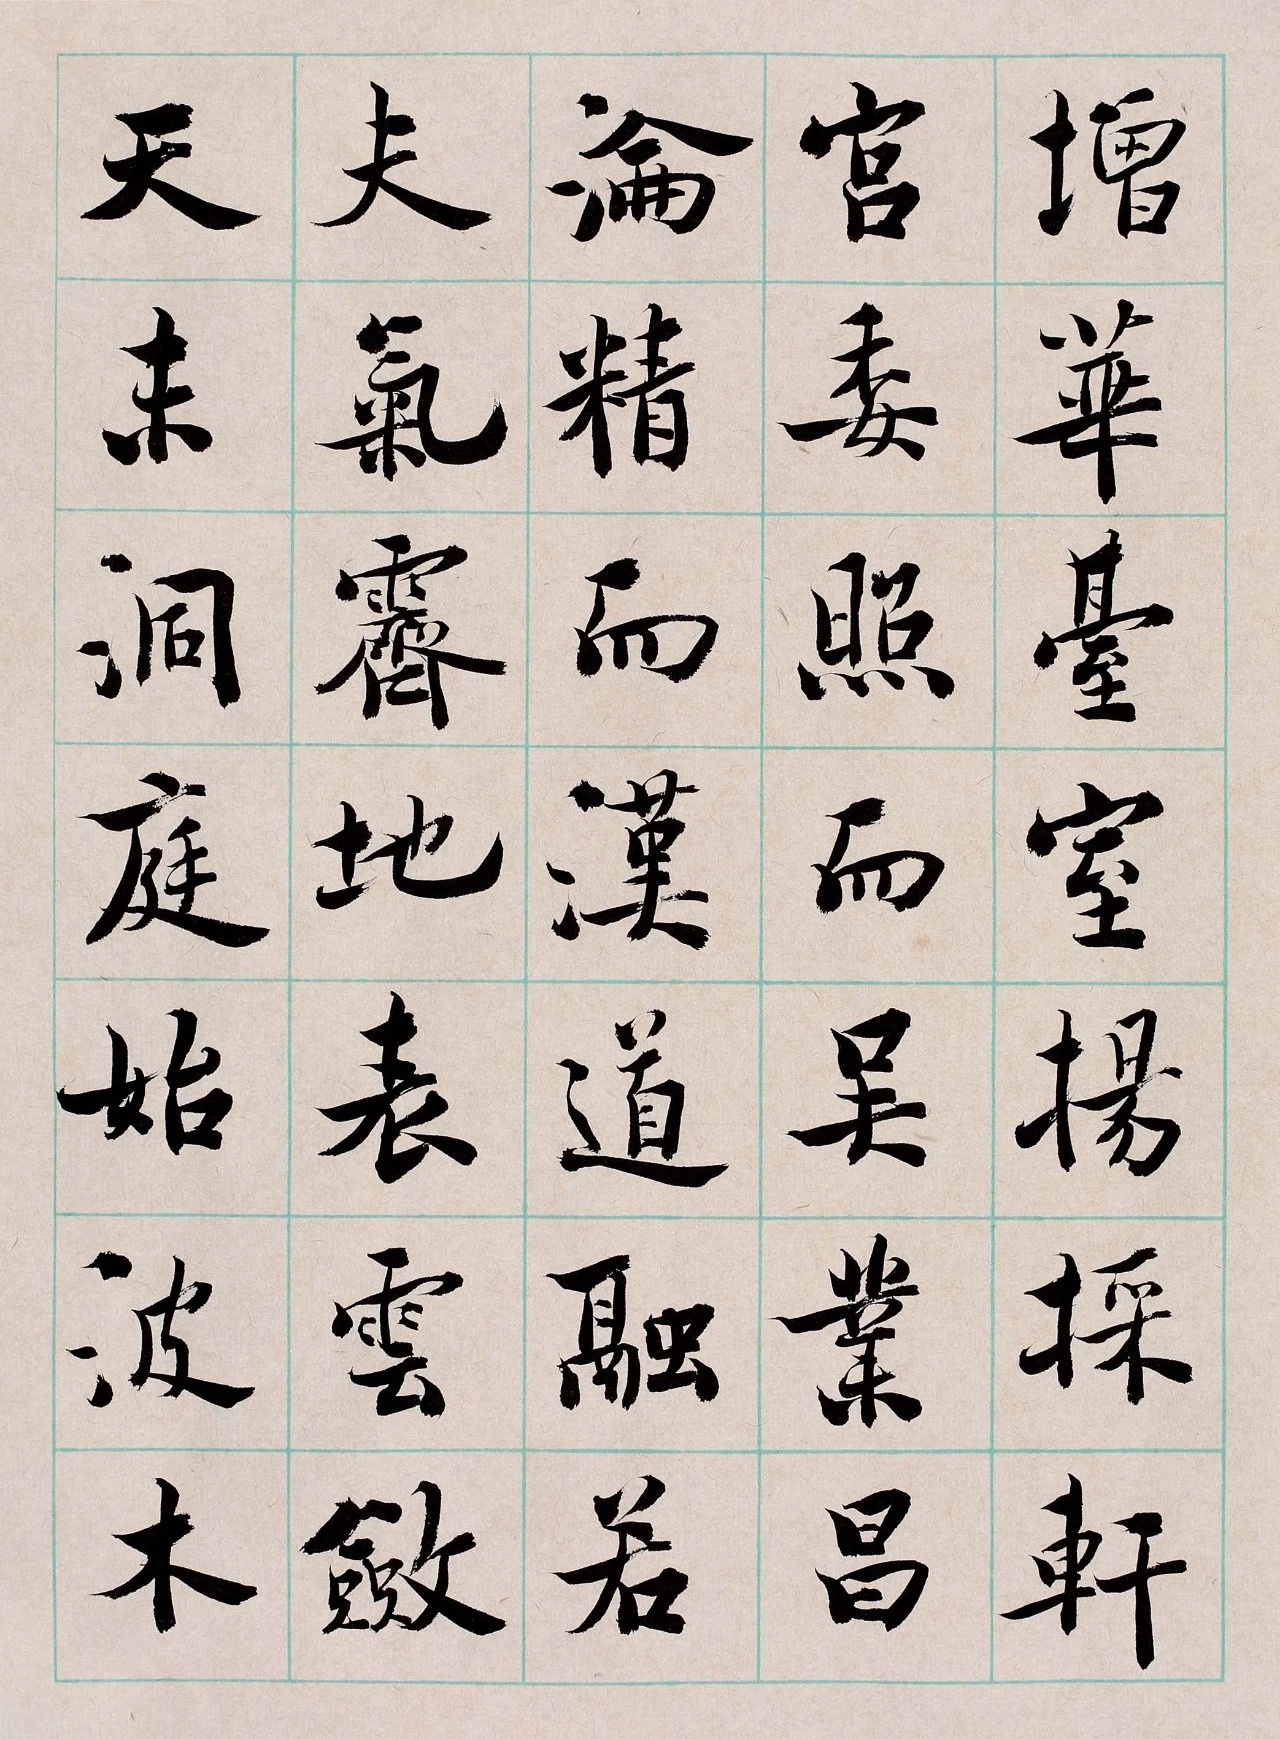 增華臺室揚採軒
宮委照而吳業昌
淪精而漢道融若
夫氣霽地表雲斂
天末洞庭始波木